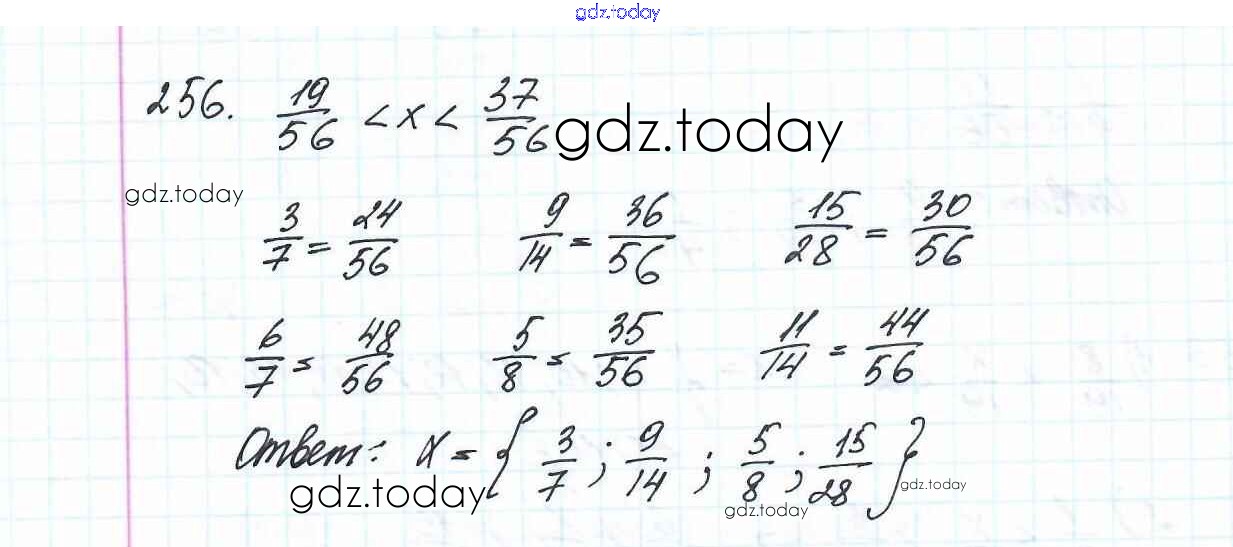 gdz.today
256. 19/56 < x < 37/56 gdz.today
gdz.today
3/7 = 24/56 9/14 = 36/56 15/28 = 30/56
6/7 = 48/56 5/8 = 35/56 11/14 = 44/56
Ответ: x = { 3/7 ; 9/14 ; 5/8 ; 15/28 }
gdz.today gdz.today
gdz.today